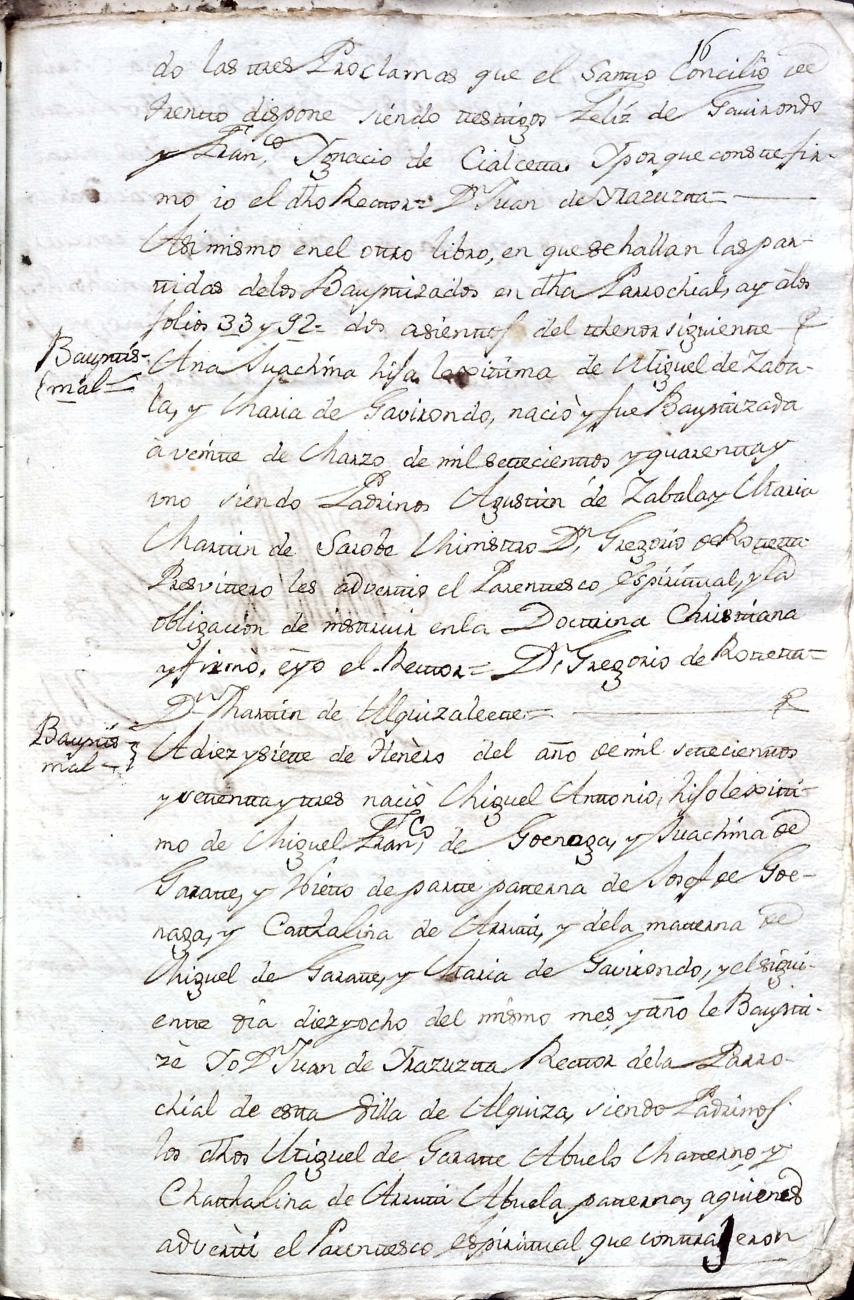 16
do las tres Proclamas que el Santo Concilio de
trento dispone siendo testigos Feliz de Gavirondo
y Fran.co Ignacio de Cialceta. Y porque conste fir-
mo io el dho Rector= Dn Juan de Yrazuzta=
Asimismo enel otro libro, en que se hallan las par-
tidas delos Bauptizados en dha Parrochial, ay à los
folios 33 y 92= dos asientos del thenor siguiente
Bauptis-
mal=
Ana Juachina hija lexitima de Miguel de Zaba-
la, y Maria de Gavirondo, naciò y fue Bauptizada
à veinte de Marzo de mil setecientos y quarenta y
uno siendo Padrinos Agustin de Zabala y Maria
Martin de Sarobe Ministro Dn Gregorio de Roteta
Presvitero les advertio el Parentesco Espiritual, y la
obligacion de instruir enla Doctrina Christiana
y firmò, èyo el Rector= Dn Gregorio de Roteta=
Dn Martin de Alquizalete=
Bauptis-
mal=
A diez y siete de Henèro del año de mil setecientos
y setenta y tres naciò Miguel Antonio, hijo lexiti-
mo de Miguel Fran.co de Goenaga, y Juachina de
Garate, y Nieto de parte paterna de Josef de Goe-
naga, y Cathalina de Arruti, y dela materna de
Miguel de Garate, y Maria de Gavirondo, y el sigui-
ente dia diez y ocho del mismo mes, y año le Baupti-
zè Yo Dn Juan de Yrazuzta Rector dela Parro-
chial de esta Villa de Alquiza, siendo Padrinos
los dhos Miguel de Garate Abuelo Materno, y
Chathalina de Arruti Abuela paterna, aquienes
advertì el Parentesco Espiritual que contrajeron